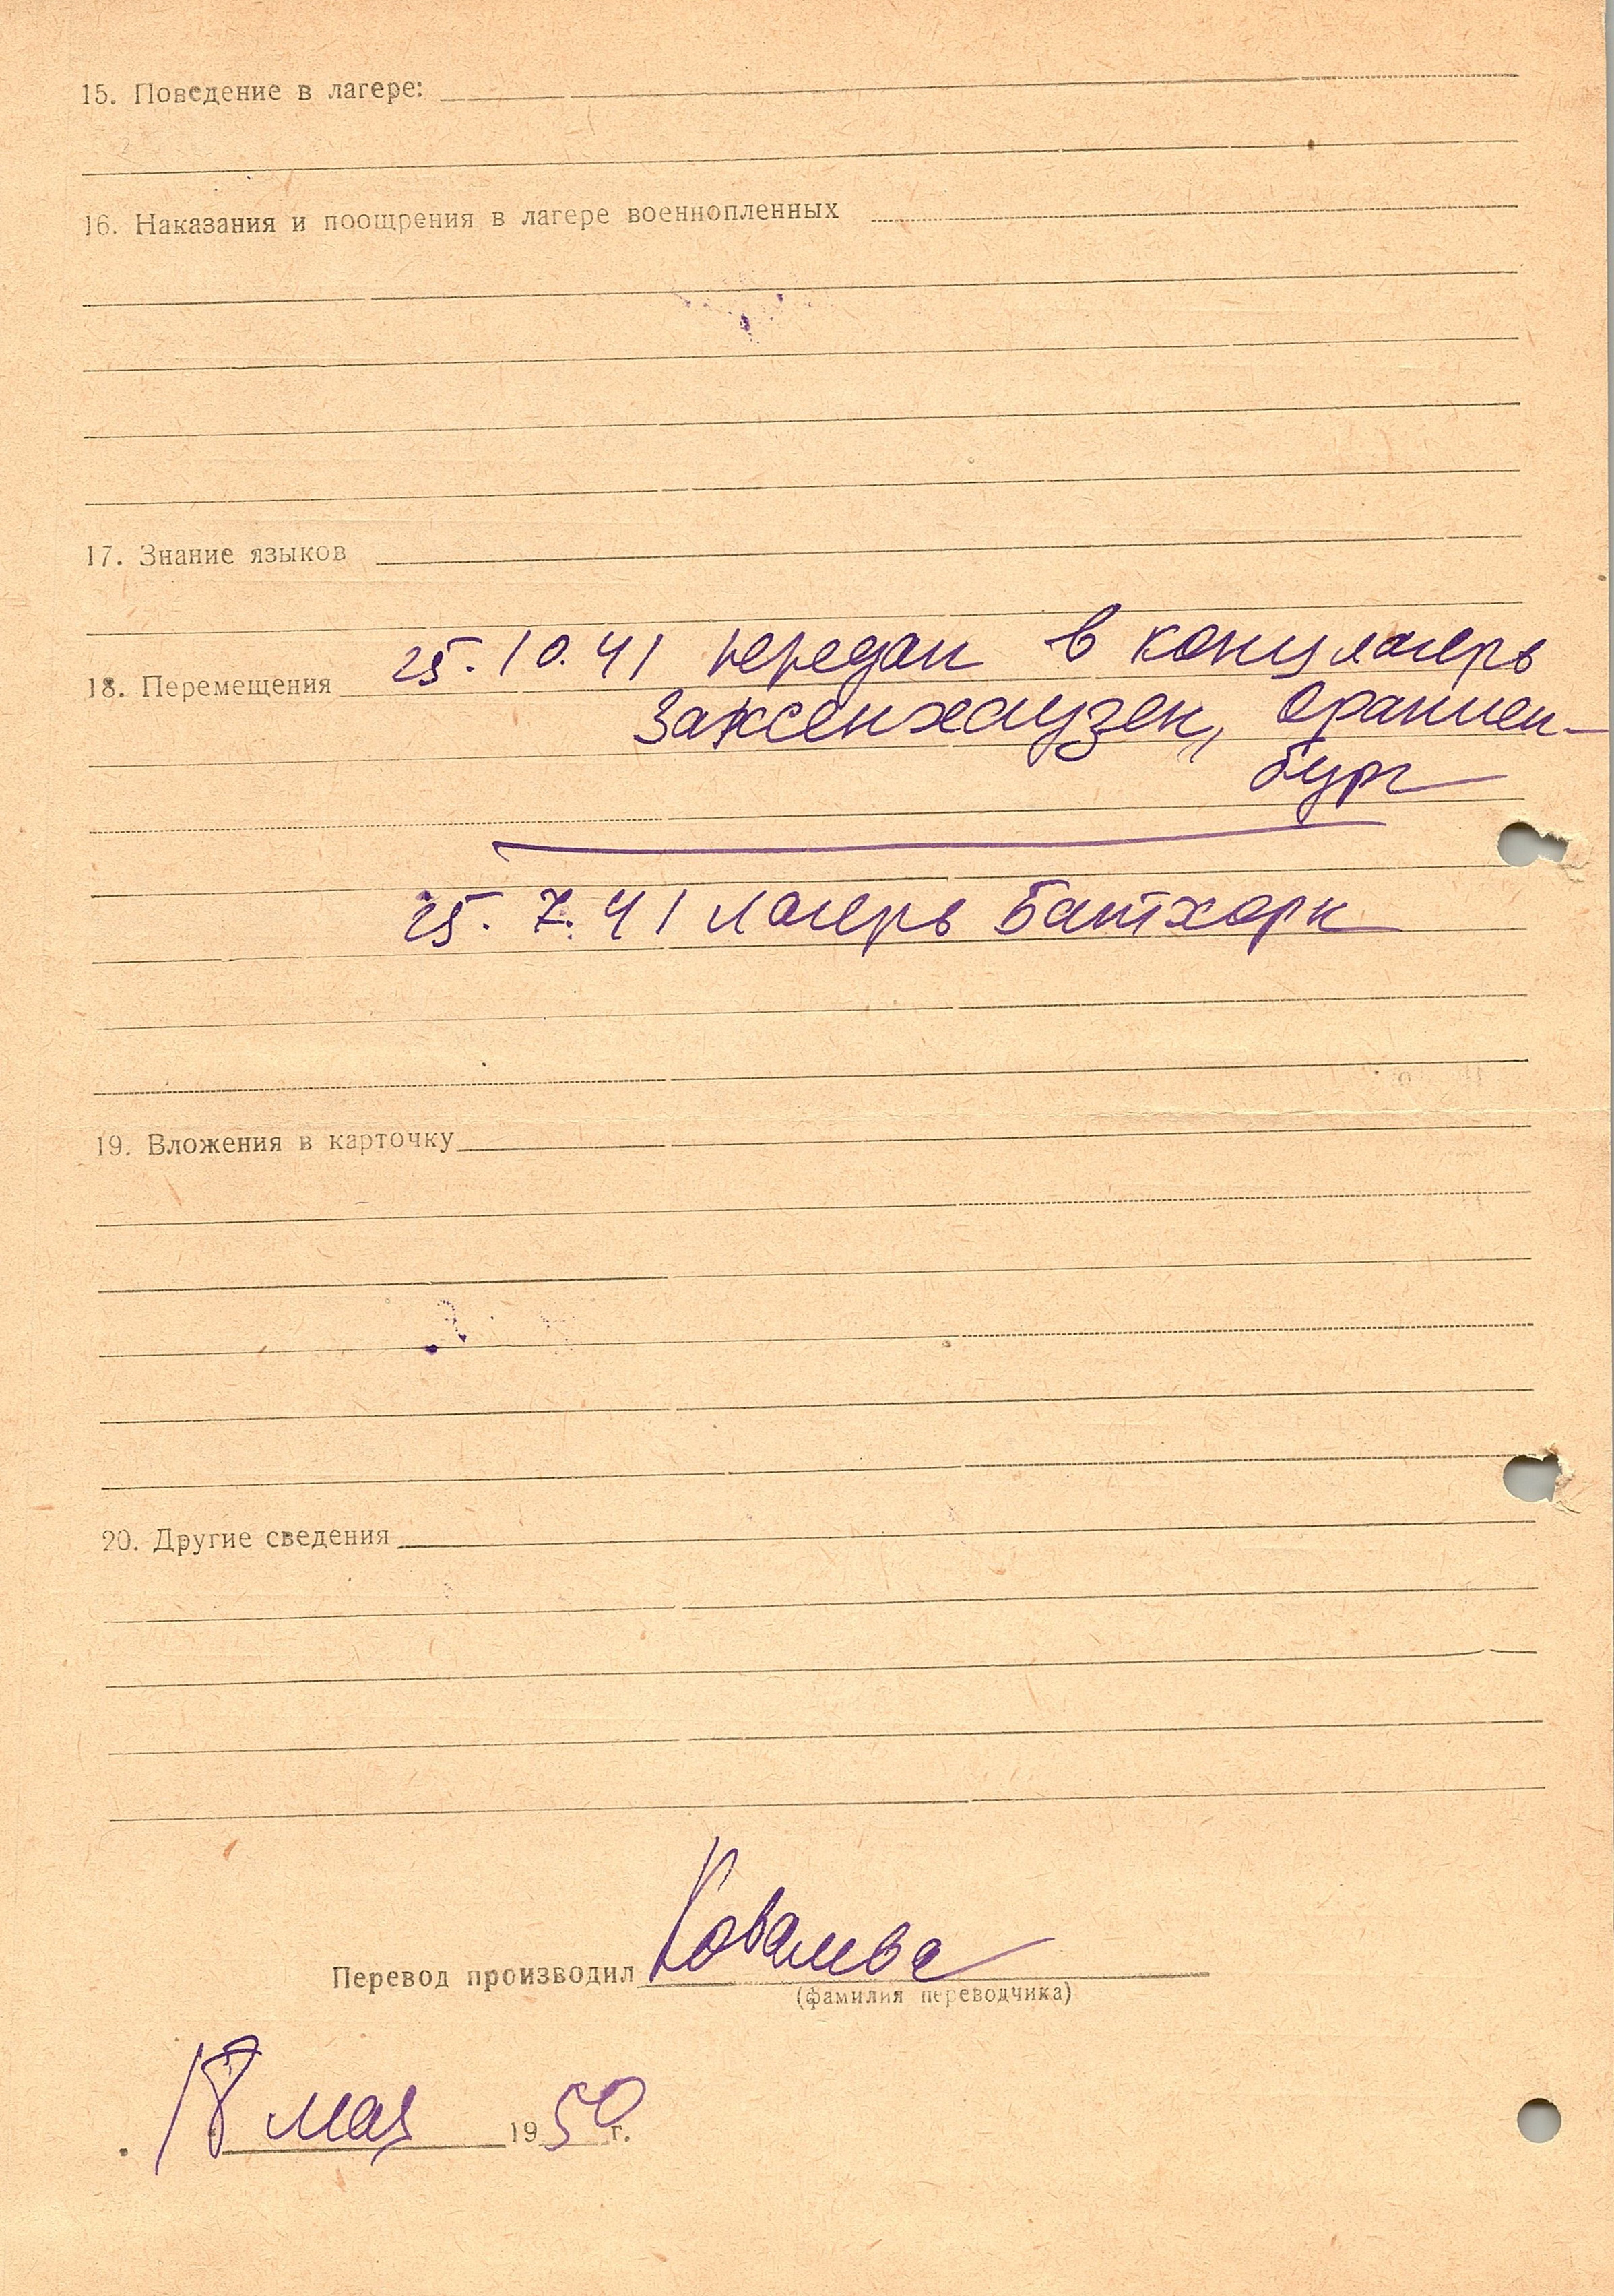 15. Поведение в лагере:
16. Наказания и поощрения в лагере военнопленных
17. Знание языков
25.10.41 передан в концлагерь
18. Перемещения
Заксенхаузен, Ораниен-
бург
25.7.41 лагерь Батхорн
19. Вложения в карточку
20. Другие сведения
Перевод производил Ковалева
(фамилия переводчика)
18 мая 1950 г.